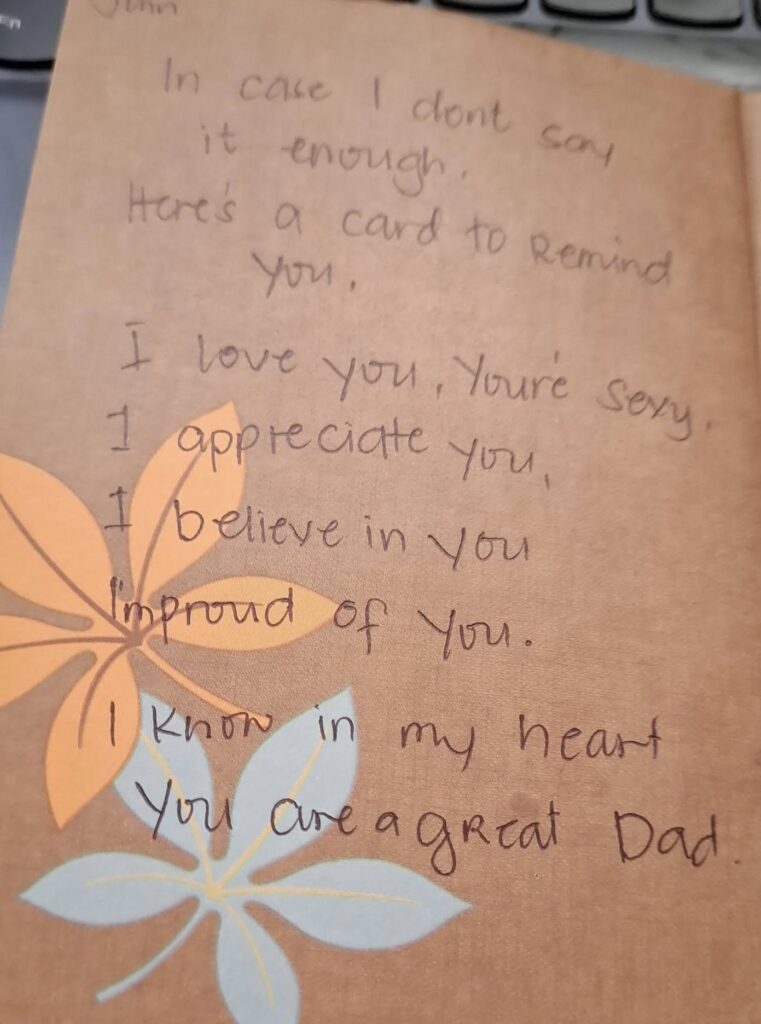 In case I dont say
it enough.
Here's a card to Remind
you.
I love you, You're sexy.
I appreciate you,
I believe in you
I'm proud of you.
I know in my heart
You are a great Dad.